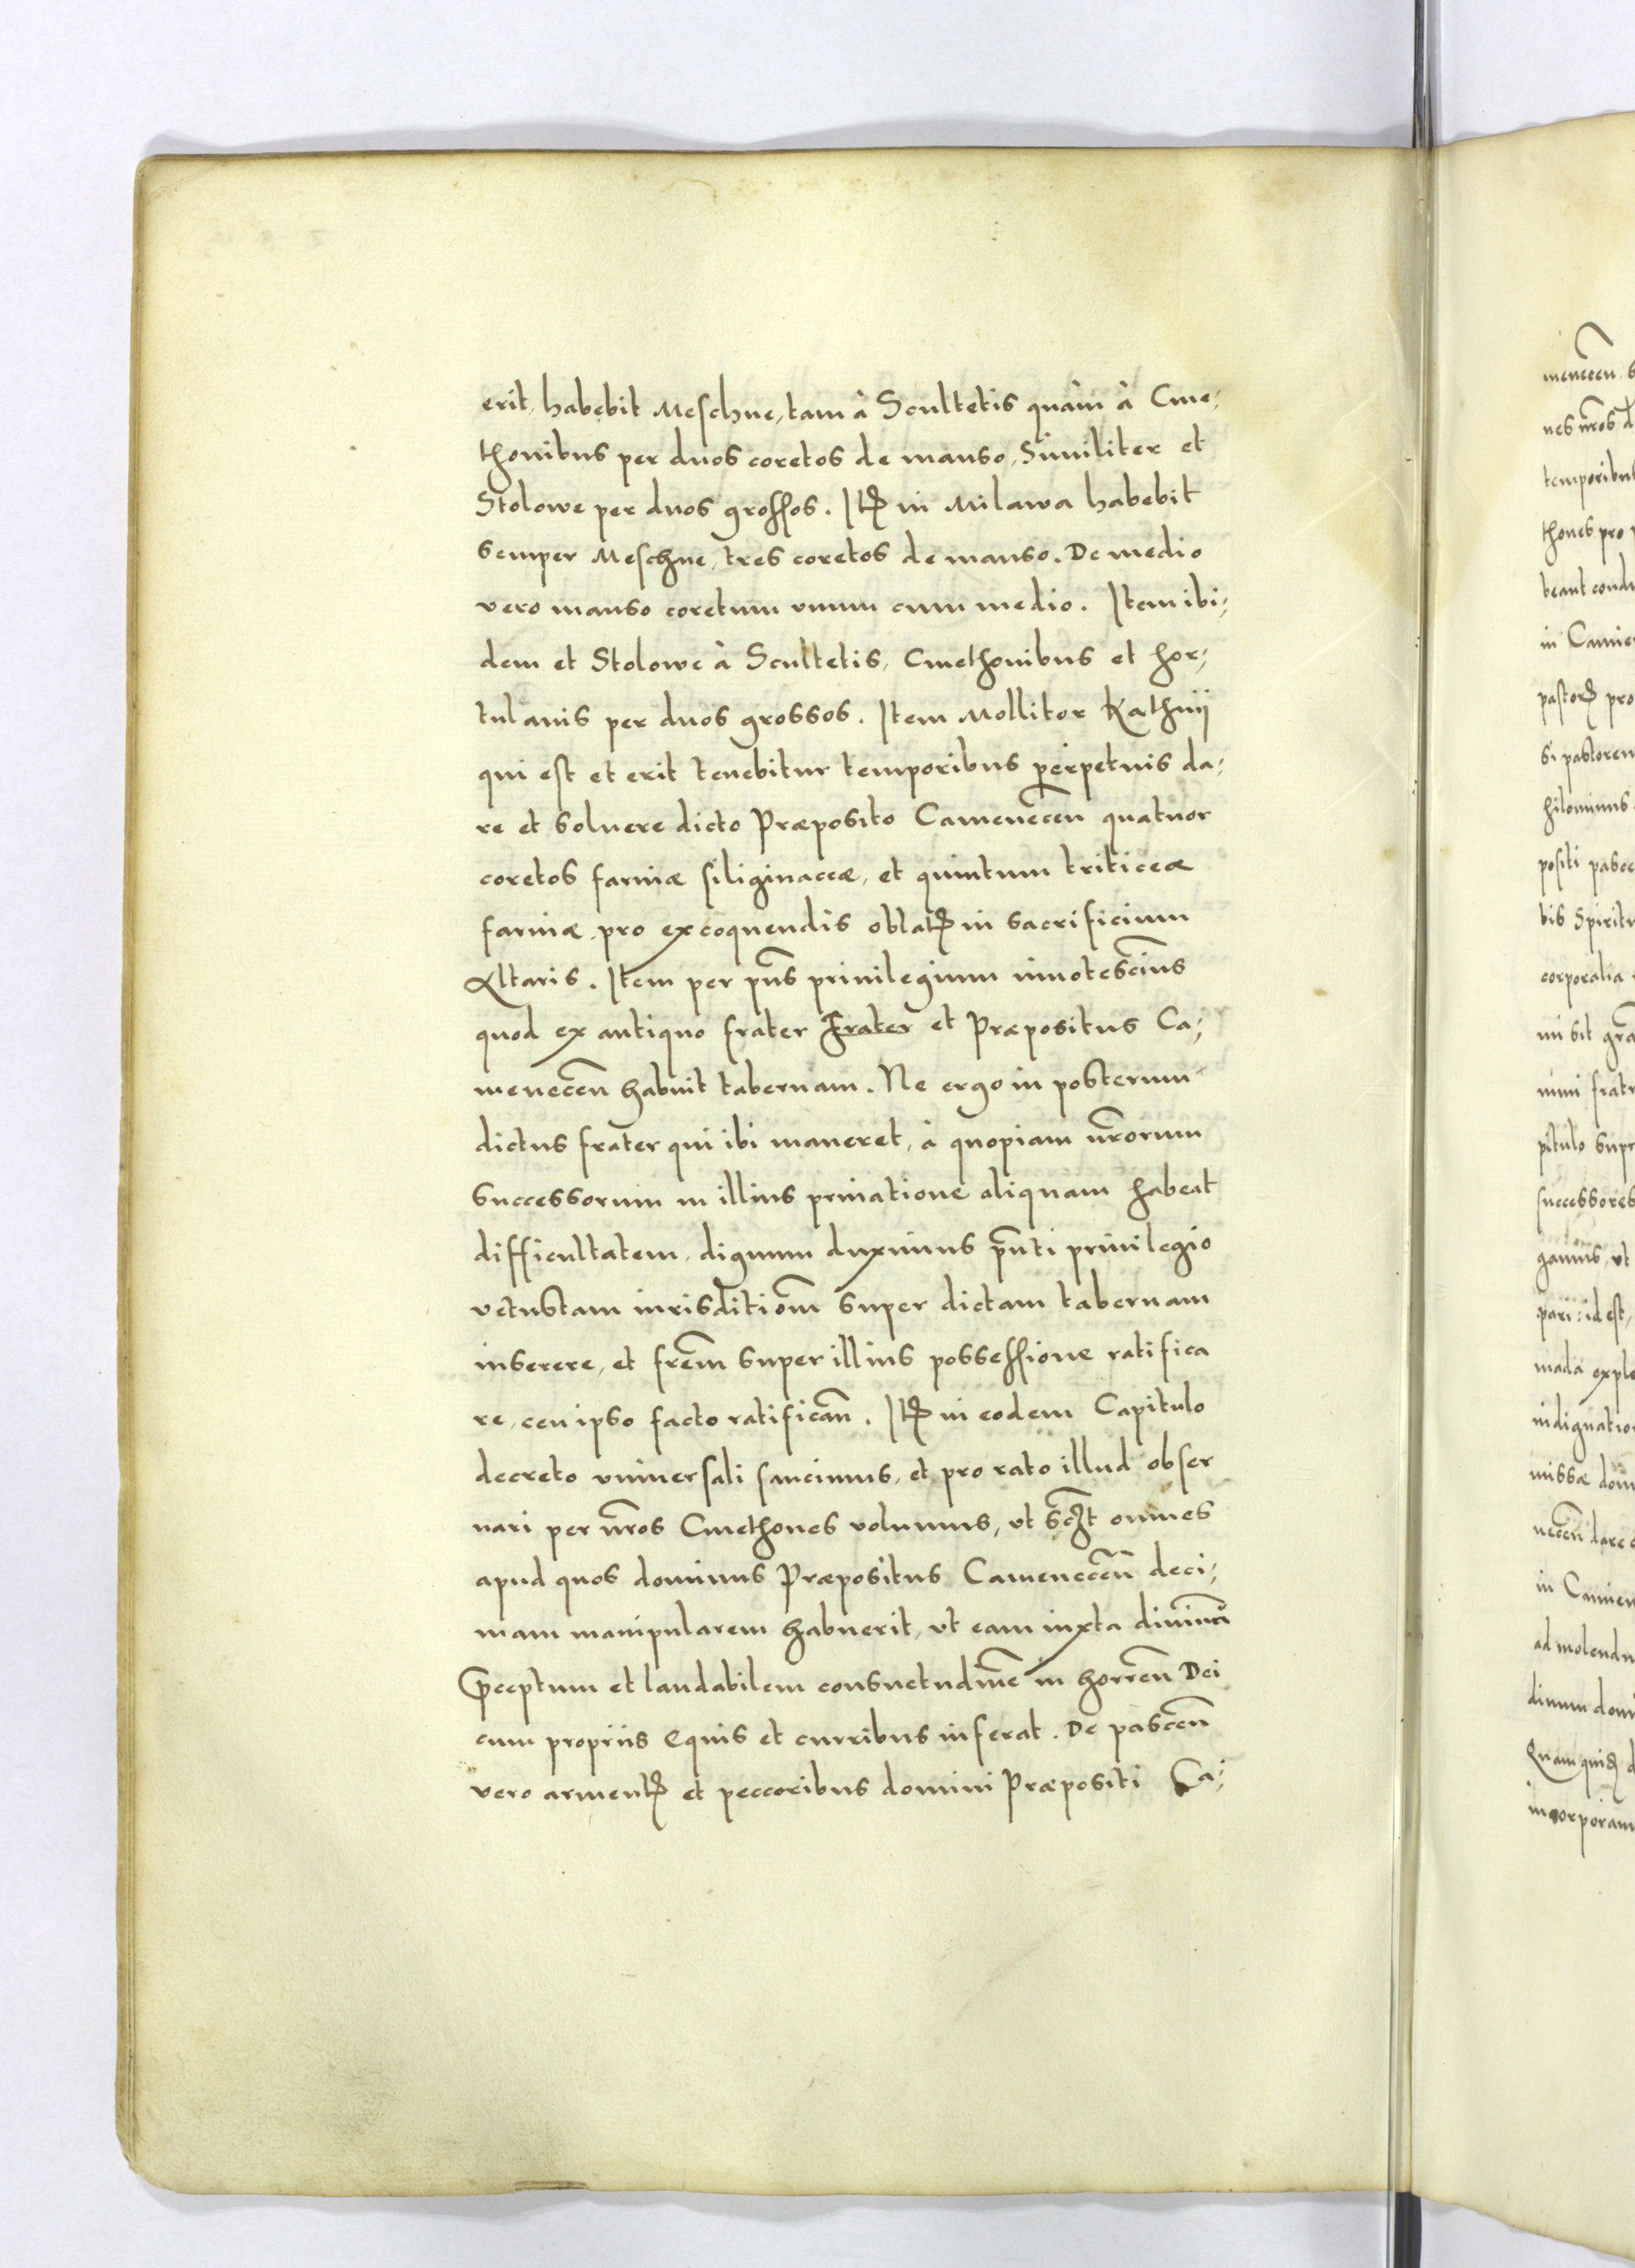 erit, habebit Meschne, tam à Scultetis quàm à Cme,
thonibus per duos coretos de manso, Similiter et
Stolowe per duos grossos. Itē in Milawa habebit
semper Meschne, tres coretos de manso. De medio
vero manso coretum vnum cum medio. Item ibi,
dem et Stolowe à Scultetis, Cmethonibus et hor,
tulanis per duos grossos. Item Mollitor Kathnij
qui est et erit tenebitur temporibus perpetuis da,
re et soluere dicto Præposito Camenecen̄ quatuor
coretos farinæ siliginaceæ, et quintum triticeæ
farinæ, pro excoquendis oblatꝭ in sacrificium
Altaris. Item per pn̄s priuilegium innotescim̄us
quod ex antiquo frater Frater et Præpositus Ca,
menecen̄ habuit tabernam. Ne ergo in posterum
dictus frater qui ibi maneret, à quopiam nr̄orum
successorum in illius priuatione aliquam habeat
difficultatem, dignum duximus pn̄ti priuilegio
vetustam iurisditiom̄ super dictam tabernam
inserere, et frēm super illius possessione ratifica
re, ceu ipso facto ratifican̄. Itē in eodem Capitulo
decreto vniuersali sancimus, et pro rato illud obser
uari per nr̄os Cmethones volumus, vt scꝫt omnes
apud quos dominus Præpositus Camenecen̄ deci,
mam manipularem habuerit, vt eam iuxta diuinū
Præceptum et laudabilem consuetudinē in horren̄ Dei
cum propriis equis et curribus inferat. De pascen̄
vero armentꝭ et peccoribus domini Præpositi Ca,
menecen̄
nes nr̄os
temporibus
thones pro
beant
in
pastorꝭ pro
si pastorem
hilominus
positi
bis Spiritu
corporalia
ni sit
nini
pitulo
successores
gamus, vt
pari: id est,
mada
missæ
necen̄ dare
in
ad
dinum
Quam
incorporam